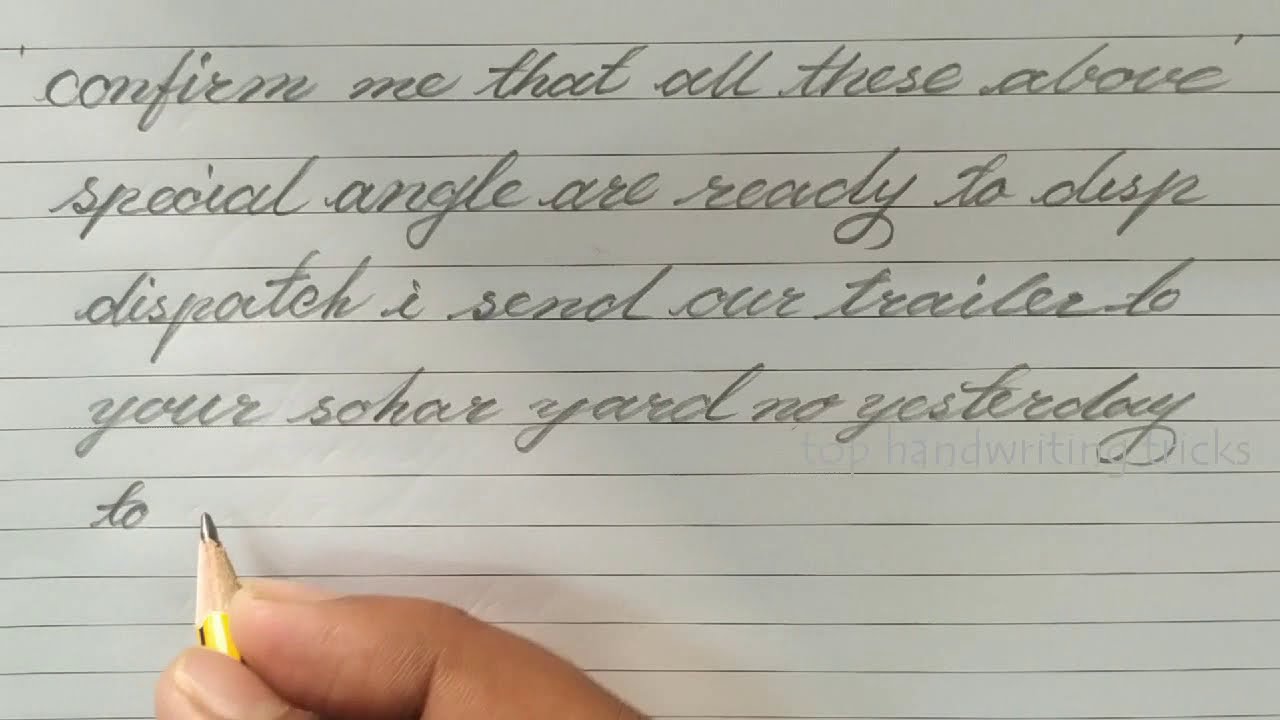 confirm me that all these above
special angle are ready to disp
dispatch i send our trailer to
your sohar yard no yesterday
top handwriting tricks
to